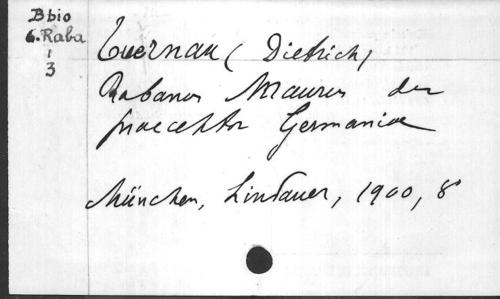 Bbio
6.Raba
1
3
Tuernau (Dietrich)
Rabanus Maurus der
praeceptor Germaniae
München, Lindauer, 1900, 8°